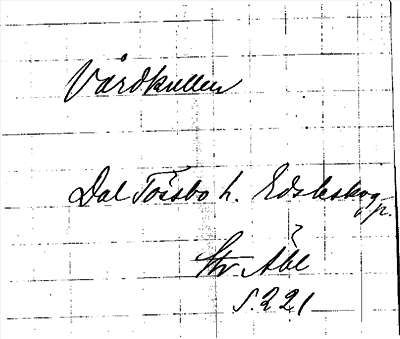 Vårdkullen
Dal Tössbo h. Edsleskog p.
Åbl
S. 221